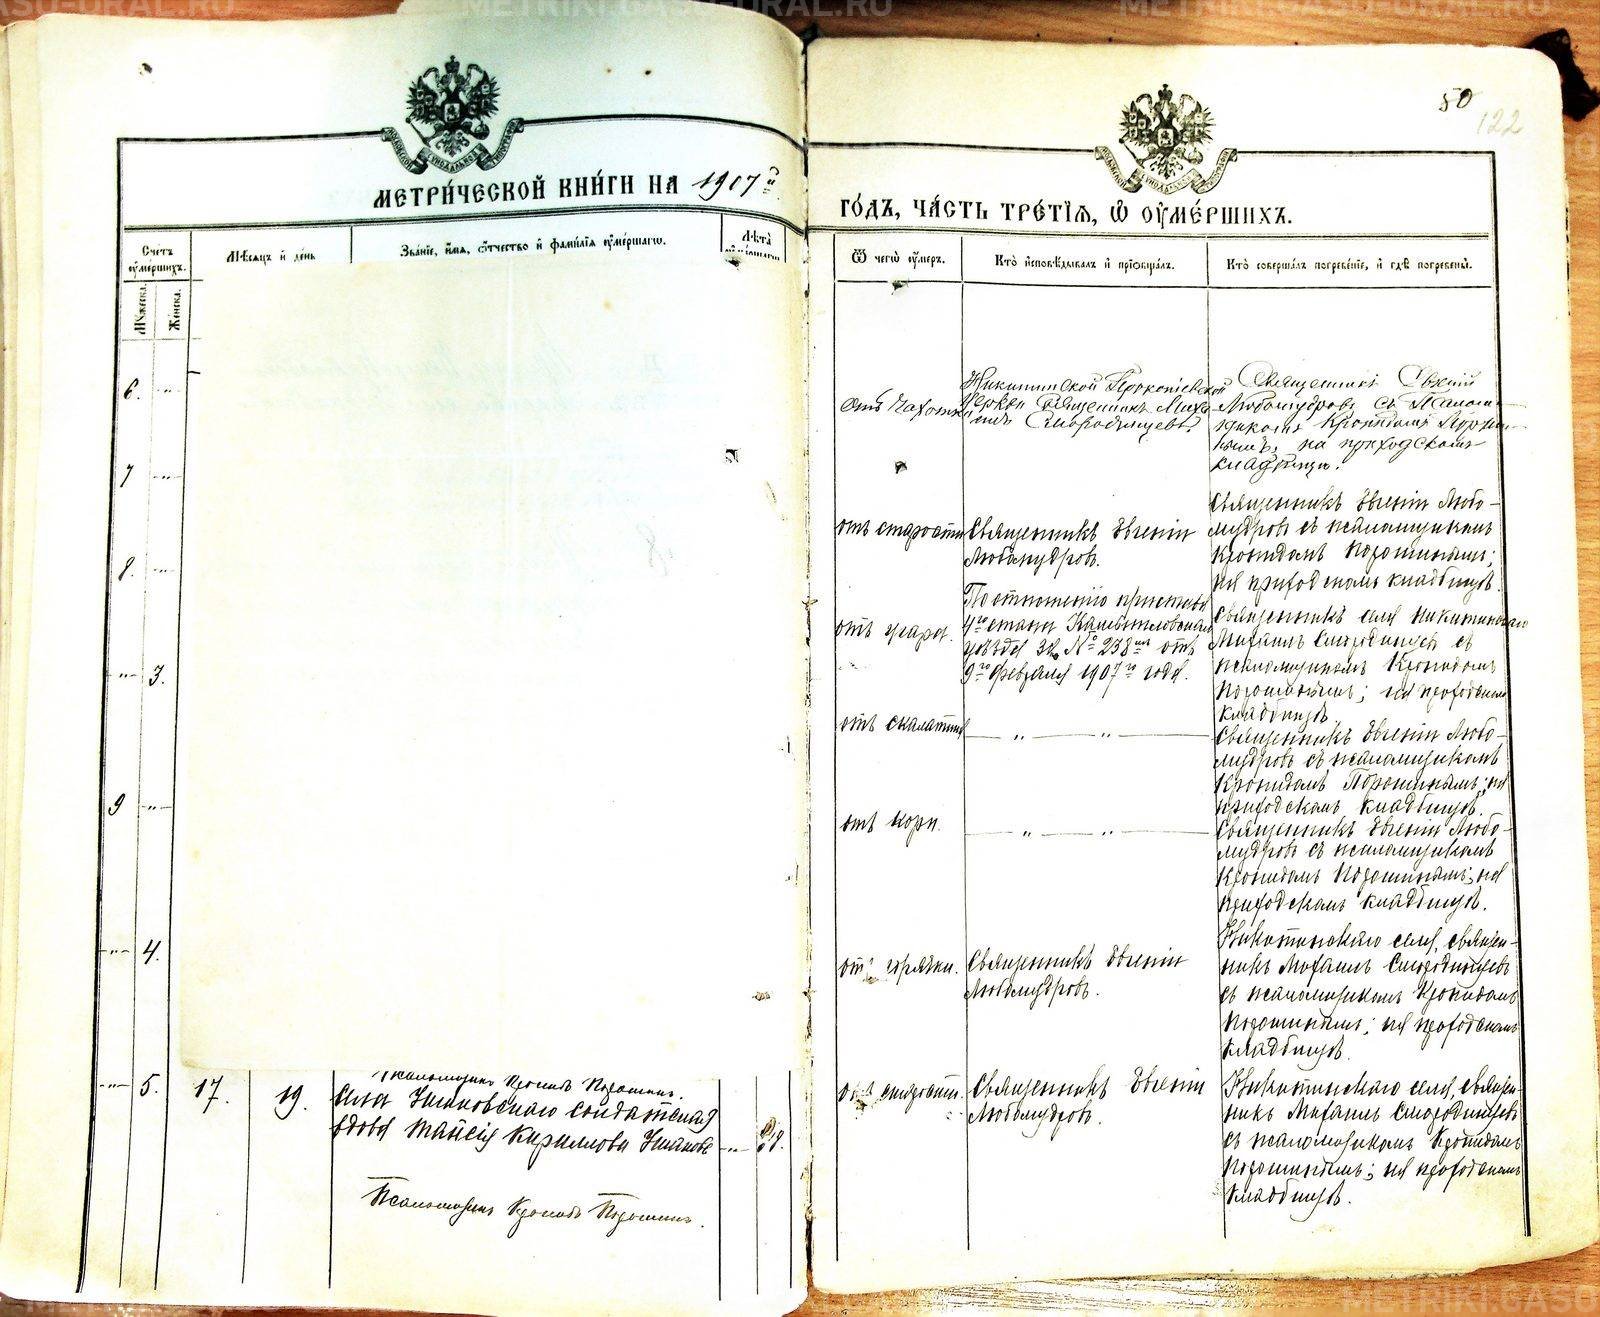 METRIKI.GASO-URAL.RU
METRIKI.GASO-URAL.RU
50
122
МЕТРИ́ЧЕСКОЙ КНИ́ГИ НА 1907й
ГО́ДЪ, ЧА́СТЬ ТРЕ́ТІѦ, Ѡ ОУ҆МЕ́РШИХЪ.
Сче́тъ оу҆ме́ршихъ.
Мѣсѧцъ и де́нь
Зва́ніе, и҆́мѧ, ѻ҆́тчество и фами́лїѧ оу҆ме́ршагѡ.
Лѣта̀ оу҆ме́ршагѡ
Му́жеска.
Же́нска.
Ѿ чегѡ̀ оу҆́меръ.
Кто̀ и҆сповѣ́дывалъ и҆ прїѡбща́лъ.
Кто̀ соверша́лъ погребе́нїе, и҆ гдѣ̀ погребены̀.
6. -"-
отъ чахотки
Никитинской Прокопіевской
церкви священникъ Миха-
илъ Смородинцевъ.
Священникъ Евгеній
Любомудровъ съ псалом-
щикомъ Кронидомъ Порош-
инымъ, на приходскомъ
кладбищѣ.
7 -"-
отъ старости
Священникъ Евгеній
Любомудровъ.
Священникъ Евгеній Любо-
мудровъ съ псаломщикомъ
Кронидомъ Порошинымъ;
на приходскомъ кладбищѣ.
8. -"-
отъ угара.
По отношенію пристава
4го стана Камышловскаго
уѣзда за № 238мъ отъ
9го февраля 1907го года.
Священникъ села Никитинскаго
Михаилъ Смородинцевъ съ
псаломщикомъ Кронидомъ
Порошинымъ; на приходскомъ
кладбищѣ
-"- 3.
отъ скалатины
-"- -"-
Священникъ Евгеній Любо-
мудровъ съ псаломщикомъ
Кронидомъ Порошинымъ; на
приходскомъ кладбищѣ.
9 -"-
отъ кори.
-"- -"-
Священникъ Евгеній Любо-
мудровъ съ псаломщикомъ
Кронидомъ Порошинымъ; на
приходскомъ кладбищѣ.
-"- 4.
отъ горячки.
Священникъ Евгеній
Любомудровъ.
Никитинскаго села, священ-
никъ Михаилъ Смородинцевъ
съ псаломщикомъ Кронидомъ
Порошинымъ; на приходскомъ
кладбищѣ.
Псаломщикъ Кронидъ Порошинъ.
-"- 5. 17. 19.
Села Ушаковскаго солдатская
вдова Таисія Кириллова Ушакова
-"-
отъ старости.
Священникъ Евгеній
Любомудровъ.
Никитинскаго села, священ-
никъ Михаилъ Смородинцевъ
съ псаломщикомъ Кронидомъ
Порошинымъ; на приходскомъ
кладбищѣ.
Псаломщикъ Кронидъ Порошинъ.
METRIKI.GASO